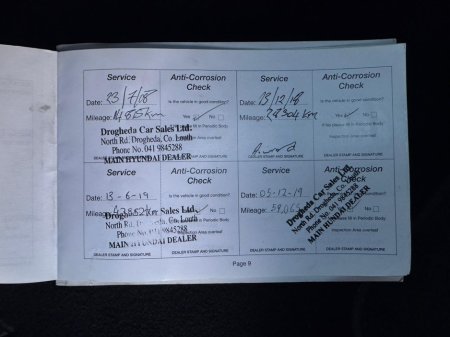 Service
Anti-Corrosion Check
Date: 23/7/18
Is the vehicle in good condition?
Mileage:
Yes No
Drogheda Car Sales Ltd.
North Rd. Drogheda, Co. Louth
Phone No. 041 9845288
MAIN HYUNDAI DEALER
DEALER STAMP AND SIGNATURE
Service
Anti-Corrosion Check
Date: 13/12/18
Is the vehicle in good condition?
Mileage: km
Yes No
If No please fill in Periodic Body
Inspection Area overleaf
DEALER STAMP AND SIGNATURE
Service
Anti-Corrosion Check
Date: 13-6-19
Is the vehicle in good condition?
Mileage:
No
Drogheda Car Sales Ltd.
North Rd. Drogheda, Co. Louth
Phone No. 041 9845288
MAIN HYUNDAI DEALER
DEALER STAMP AND SIGNATURE
Service
Anti-Corrosion Check
Date: 05-12-19
Mileage:
No
Drogheda Car Sales Ltd.
North Rd. Drogheda, Co. Louth
Phone No. 041 9845288
MAIN HYUNDAI DEALER
Inspection Area overleaf
DEALER STAMP AND SIGNATURE
Page 9